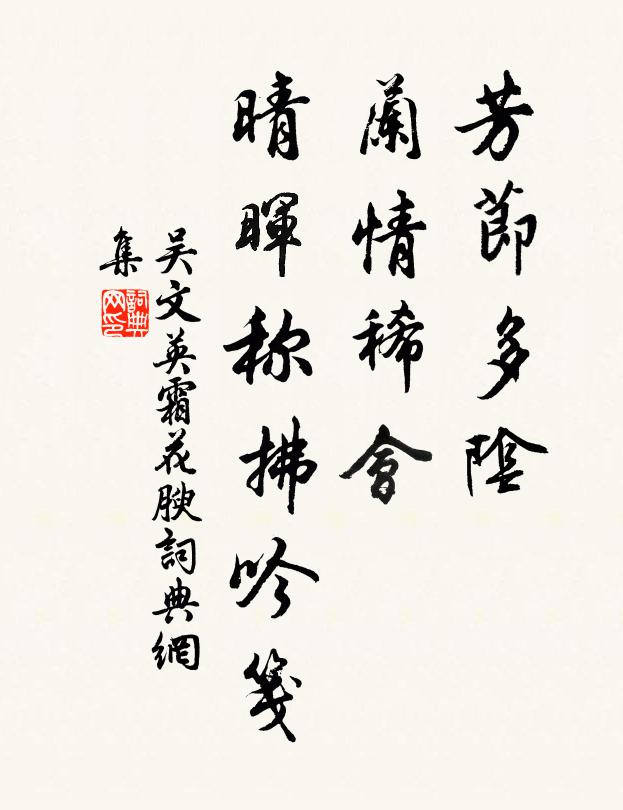 芳節多陰
蘭情稀會
晴暉称拂吟箋
吴文英霜花腴詞典網
集
詞典网印